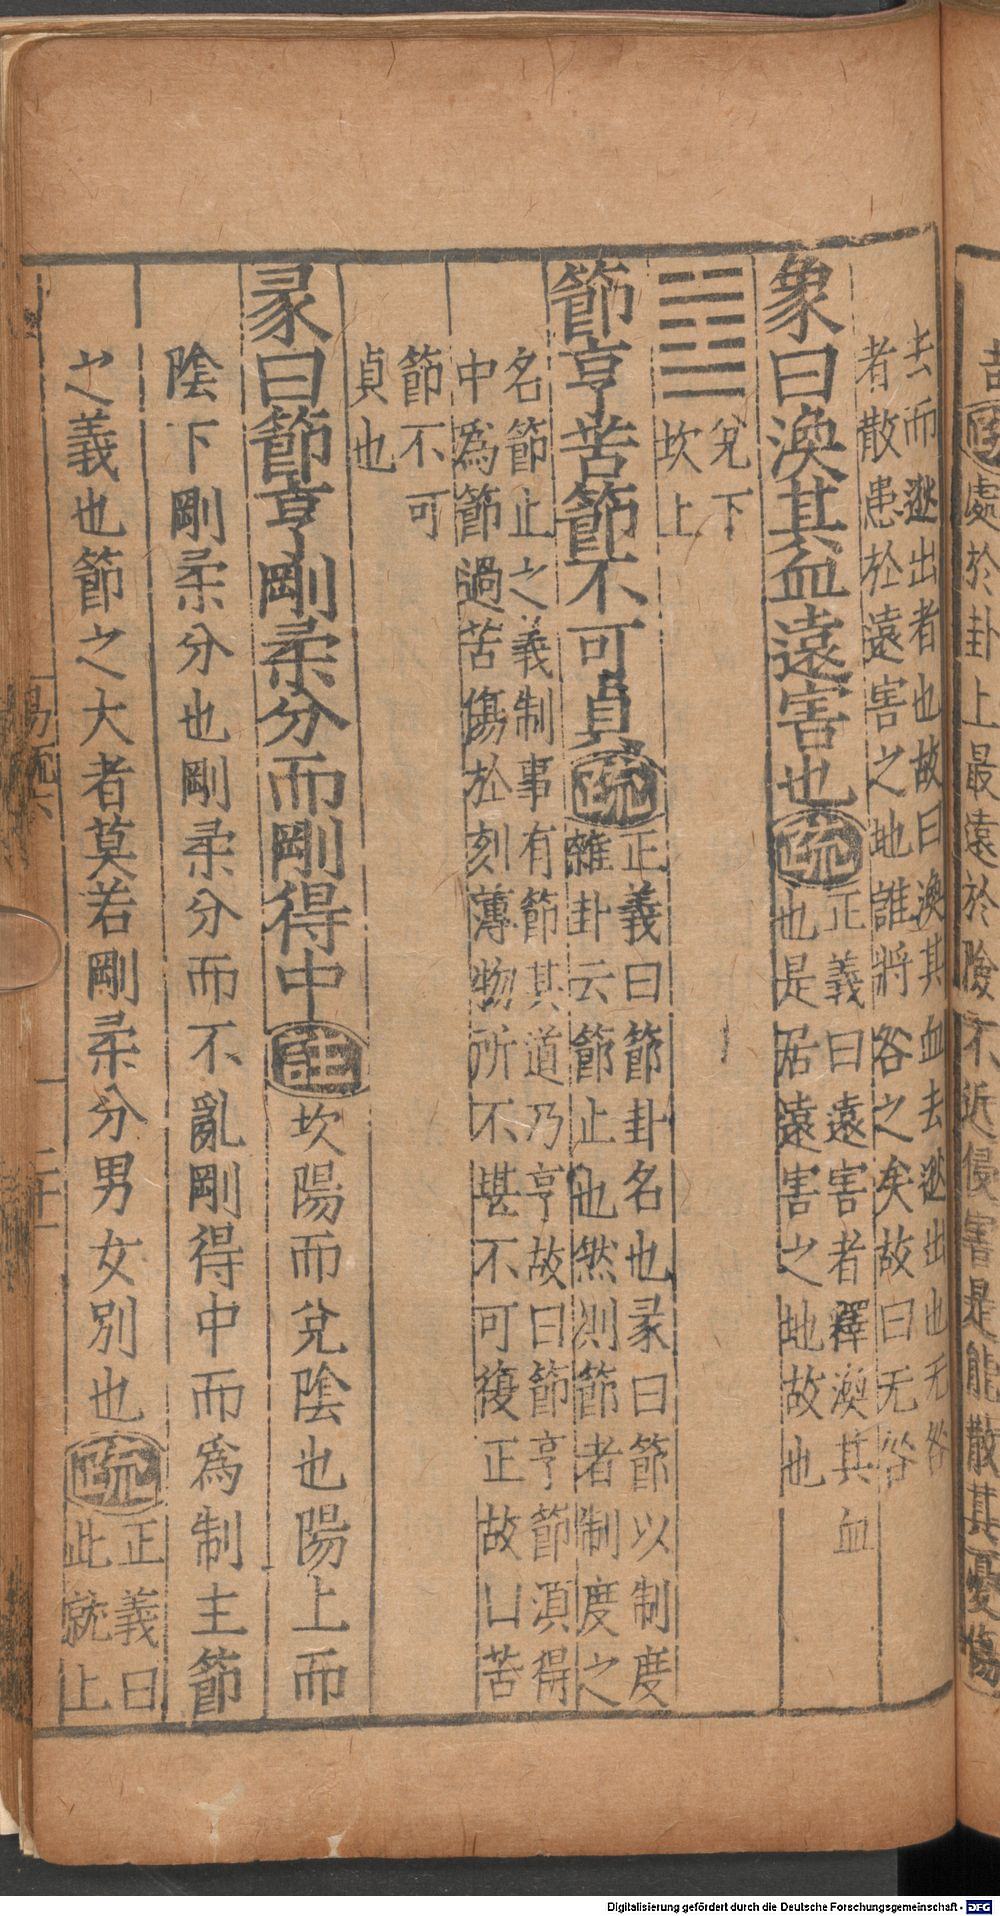 吉疏處於卦上最遠於險不近侵害是能散其憂傷
去而逖出者也故曰渙其血去逖出也无咎
者散患於遠害之地誰將咎之矣故曰无咎
象曰渙其血遠害也疏正義曰遠害者釋渙其血
也是居遠害之地故也
兌下
坎上
節亨苦節不可貞疏正義曰節卦名也彖曰節以制度
雜卦云節止也然則節者制度之
名節止之義制事有節其道乃亨故曰節亨節須得
中為節過苦傷於刻薄物所不堪不可復正故曰苦
節不可
貞也
彖曰節亨剛柔分而剛得中注坎陽而兌陰也陽上而
陰下剛柔分也剛柔分而不亂剛得中而為制主節
之義也節之大者莫若剛柔分男女別也疏正義曰
此就上
易疏六
二十一
Digitalisierung gefördert durch die Deutsche Forschungsgemeinschaft - DFG